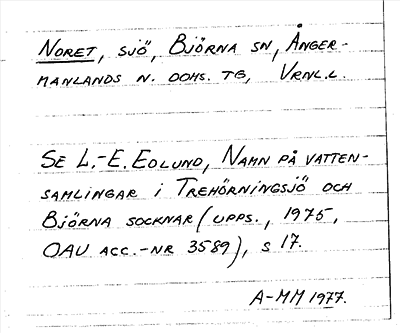 NORET, SJÖ, BJÖRNA SN, ÅNGER-
MANLANDS N. DOMS. TG, VRNL.L.
SE L.-E. EDLUND, NAMN PÅ VATTEN-
SAMLINGAR I TREHÖRNINGSJÖ OCH
BJÖRNA SOCKNAR (UPPS., 1975,
OAU ACC.-NR 3589), S 17.
A-MM 1977.